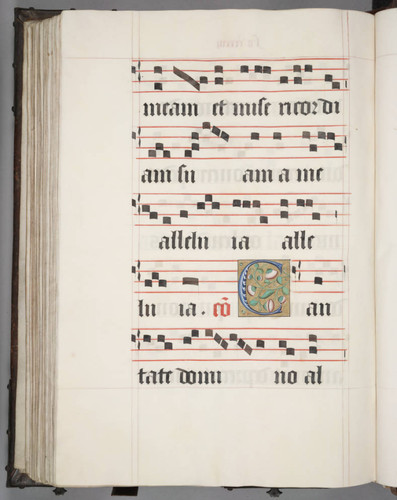 meam et mise ricordi
am su am a me
allelu ia alle
lu ia. cō Can
tate domi no al